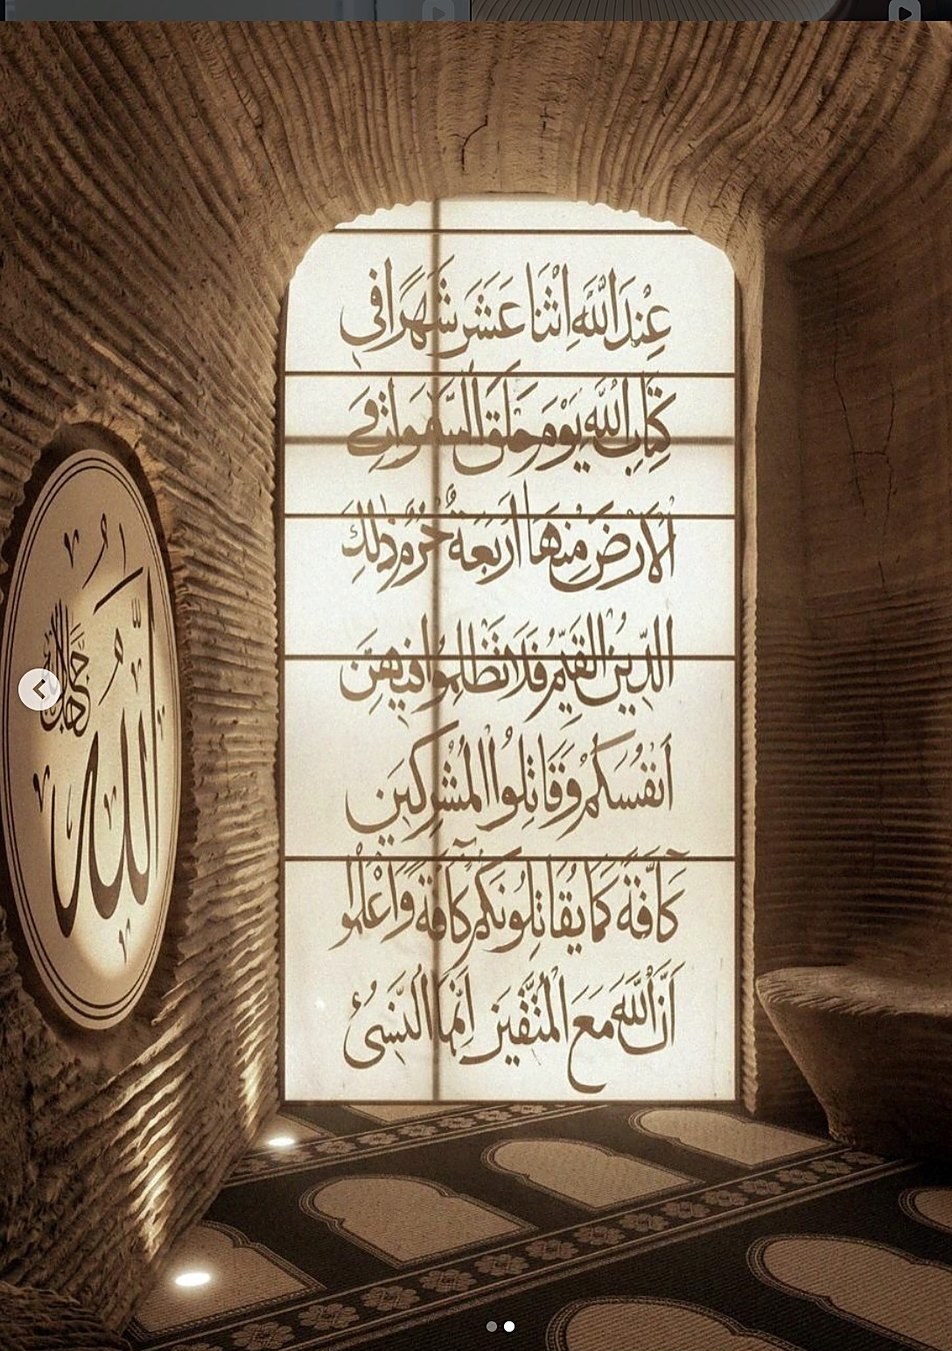 الله
جل جلاله
عِنْدَ اللَّهِ اثْنَا عَشَرَ شَهْرًا فِي
كِتَابِ اللَّهِ يَوْمَ خَلَقَ السَّمَوَاتِ وَ
الْأَرْضَ مِنْهَا أَرْبَعَةٌ حُرُمٌ ذَلِكَ
الدِّينُ الْقَيِّمُ فَلَا تَظْلِمُوا فِيهِنَّ
أَنْفُسَكُمْ وَقَاتِلُوا الْمُشْرِكِينَ
كَافَّةً كَمَا يُقَاتِلُونَكُمْ كَافَّةً وَاعْلَمُوا
أَنَّ اللَّهَ مَعَ الْمُتَّقِينَ إِنَّمَا النَّسِيءُ